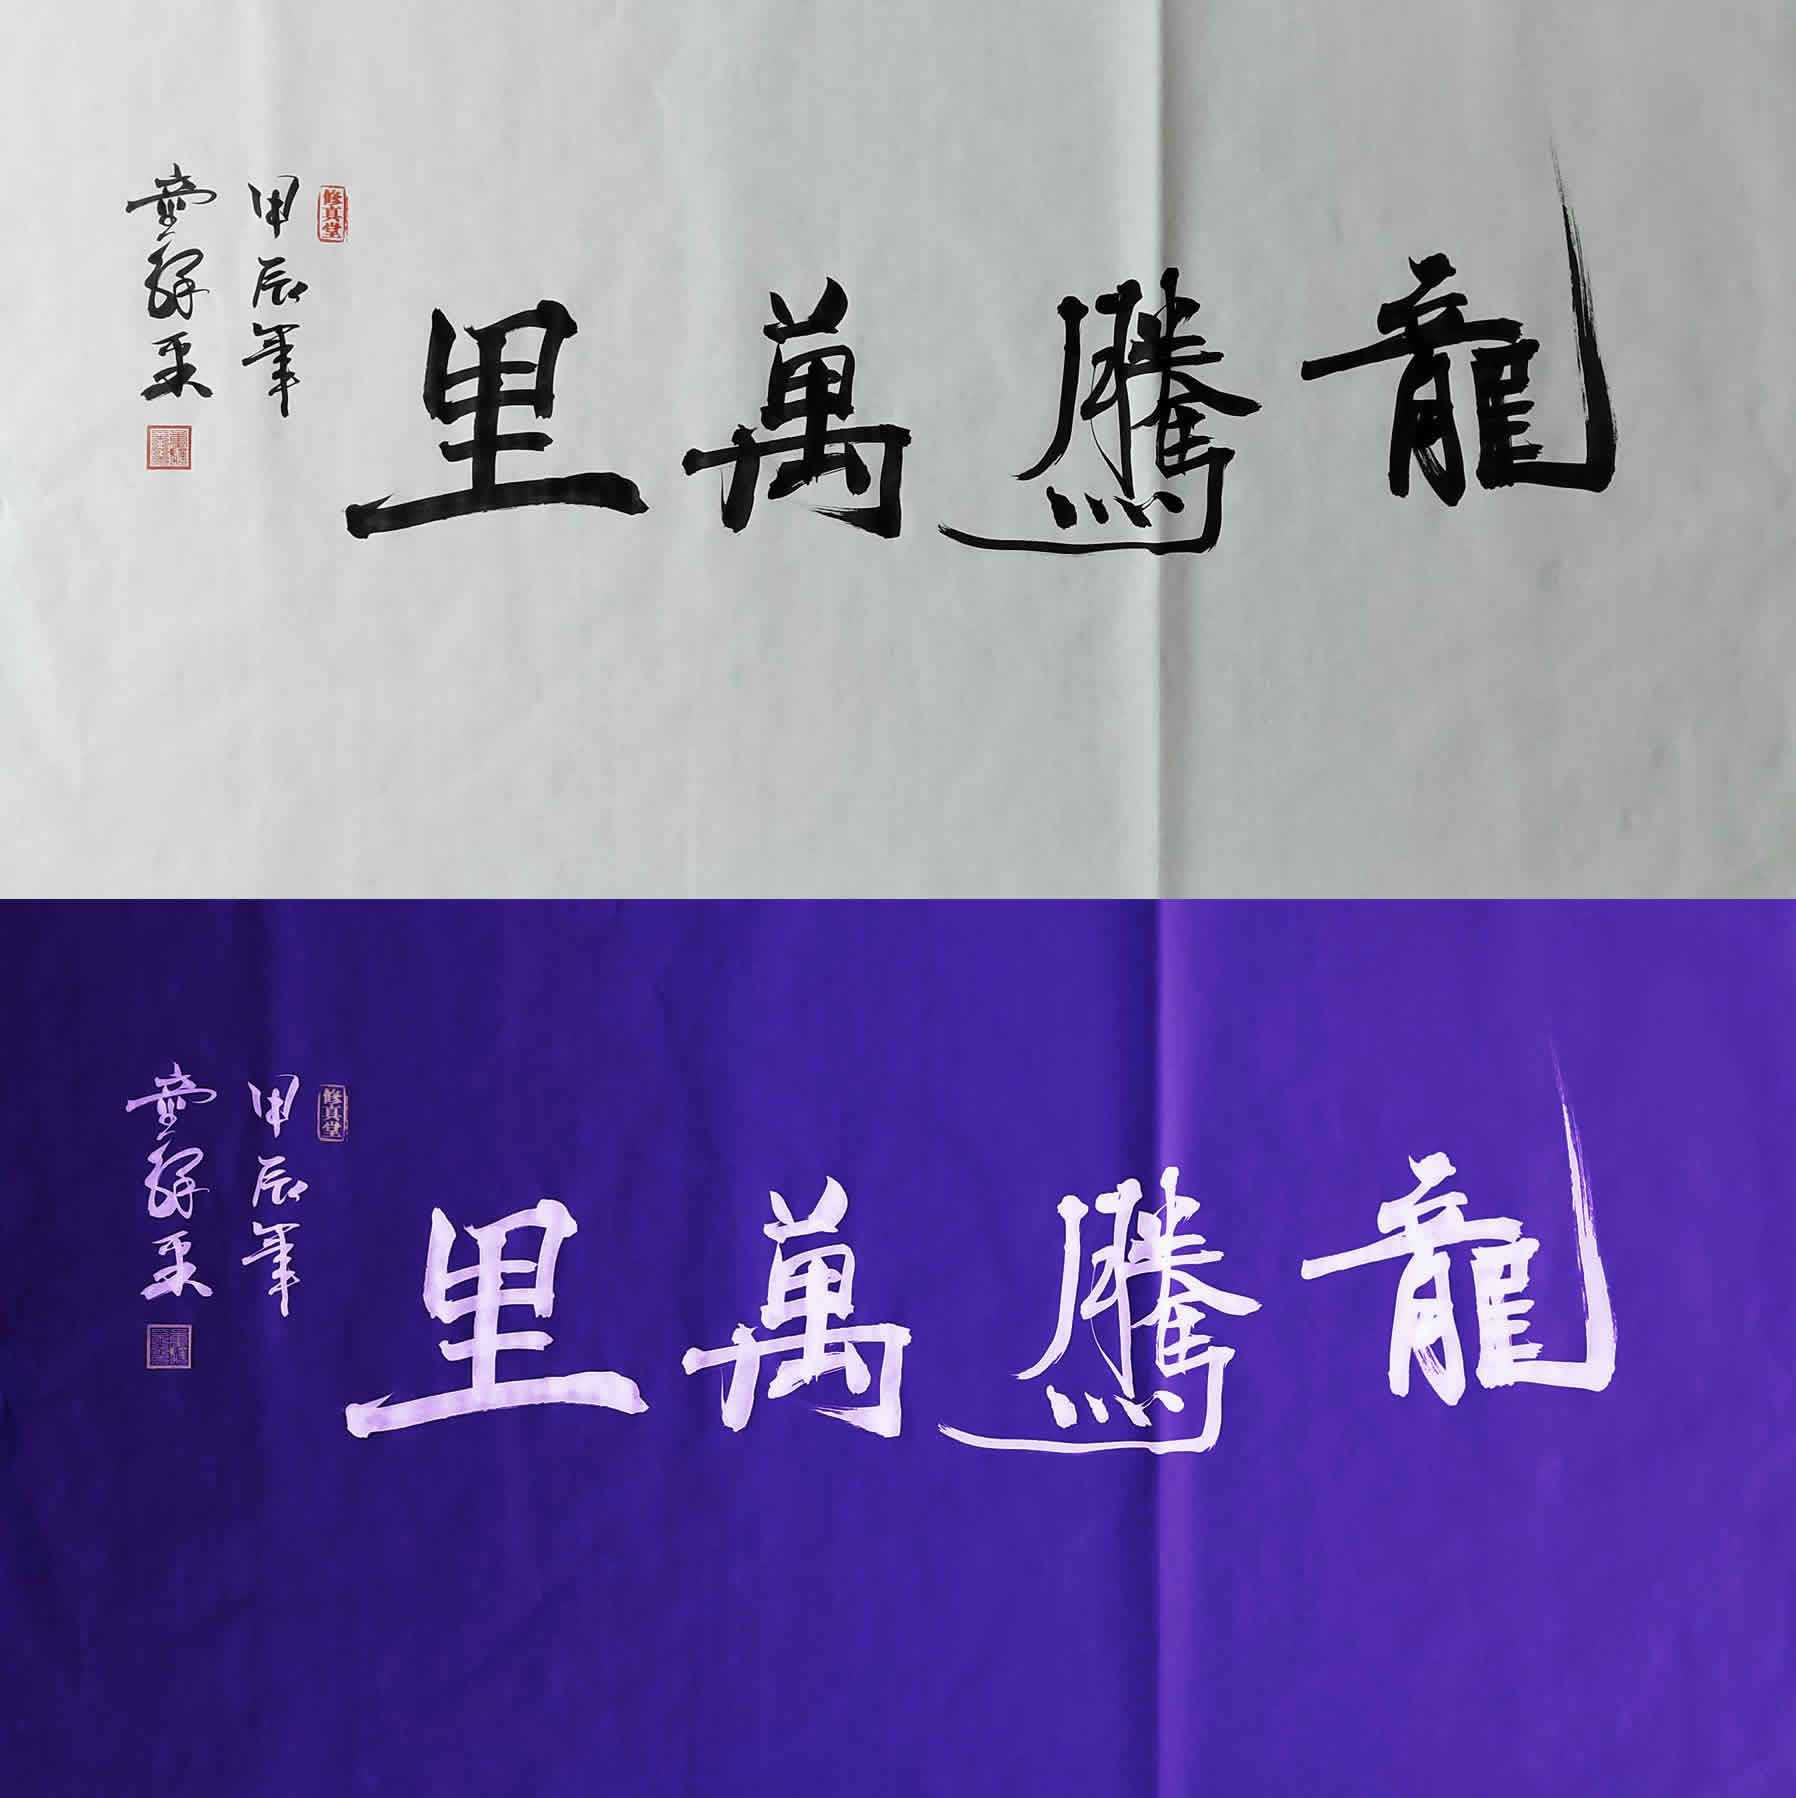 龍騰萬里
修真堂
甲辰年
龍騰萬里
修真堂
甲辰年